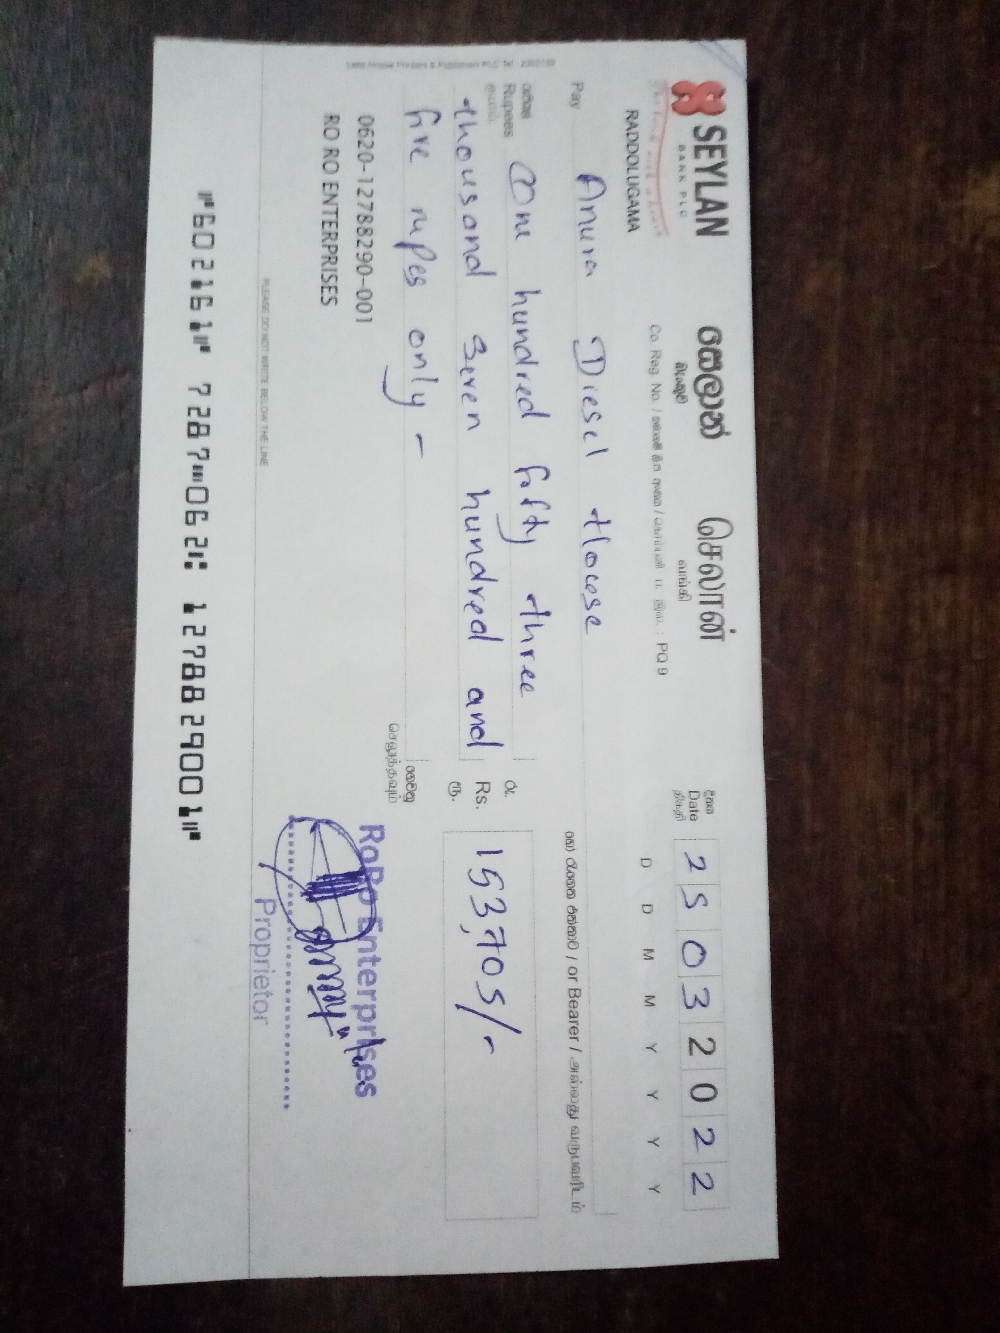 SEYLAN
BANK PLC
සෙලාන්
බැංකුව
செலான்
வங்கி
RADDOLUGAMA
Co. Reg. No. / : PQ 9
දිනය
Date
திகதி
2 5 0 3 2 0 2 2
D D M M Y Y Y Y
Pay Anura Diesel House
or Bearer / அல்லது
Rupees One hundred fifty three
thousand seven hundred and
five rupes only -
රු.
Rs.
ரூ.
153,705/-
0620-12788290-001
RO RO ENTERPRISES
RoRo Enterprises
Proprietor
PLEASE DO NOT WRITE BELOW THE LINE
⑈602161⑈ 7287⑉062⑆ 1278829001⑈